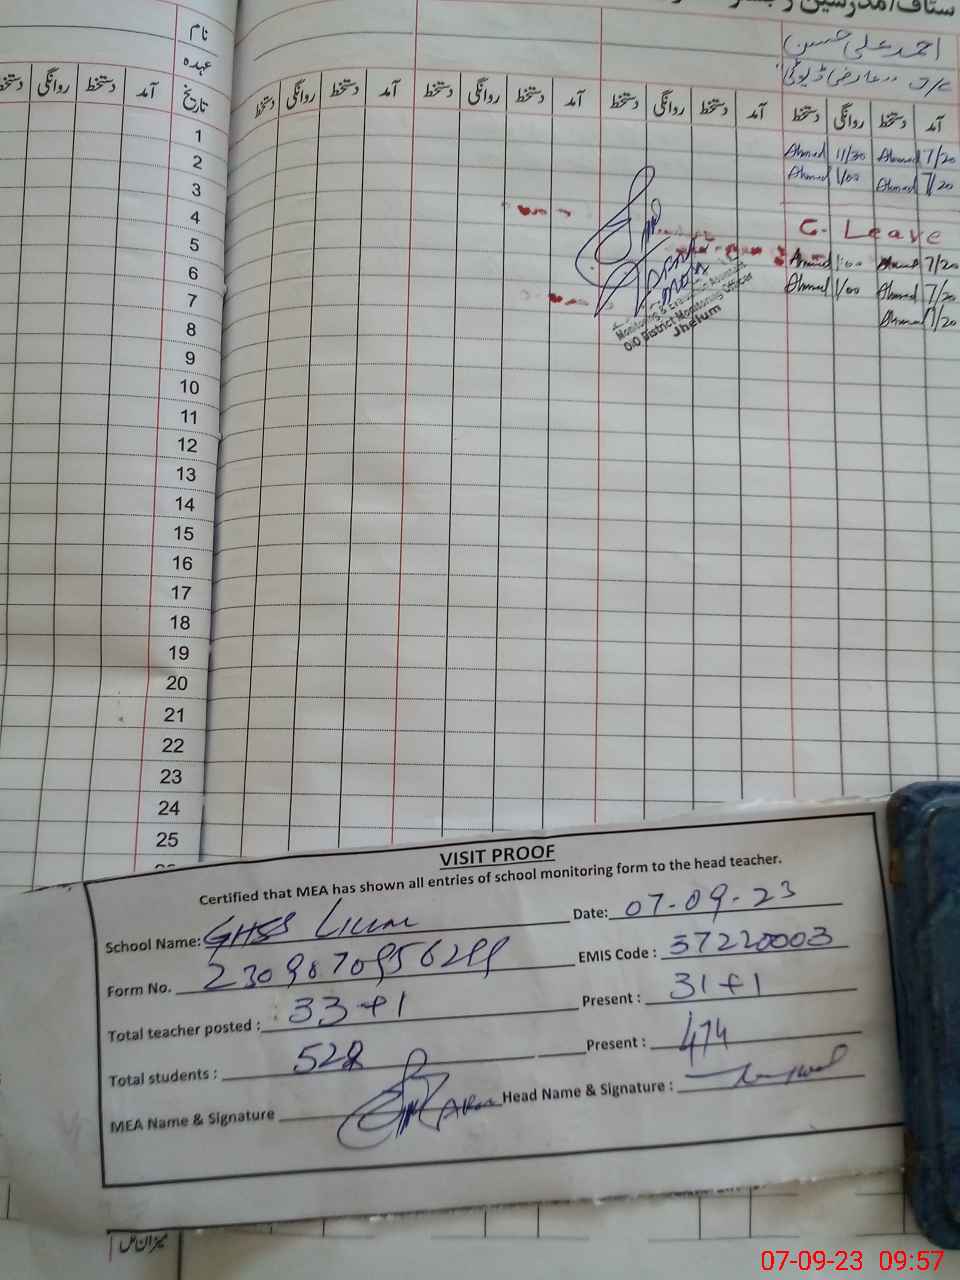 ستاف/مدرسین
نام
احمد علی حسین
عہدہ
عارضی ڈیوٹی
تاریخ آمد دستخط روانگی دستخط
آمد دستخط روانگی دستخط آمد دستخط روانگی دستخط آمد دستخط روانگی دستخط آمد دستخط روانگی دستخط
1 7/20 Ahmed 11/30 Ahmed
2 7/20 Ahmed 1/00 Ahmed
3
4 C. Leave
5 7/20 Ahmed 1:00 Ahmed
6 7/20 Ahmed 1/00 Ahmed
7 7/20 Ahmed
8
9
10
11
12
13
14
15
16
17
18
19
20
21
22
23
24
25
Monitoring & Evaluation Assistant
O/O District Monitoring Officer
Jhelum
VISIT PROOF
Certified that MEA has shown all entries of school monitoring form to the head teacher.
School Name: GHSS Date: 07-09-23
Form No. EMIS Code : 37220003
Total teacher posted : 33+1 Present : 31+1
Total students : 528 Present : 474
MEA Name & Signature Head Name & Signature :
میزان کل
07-09-23 09:57